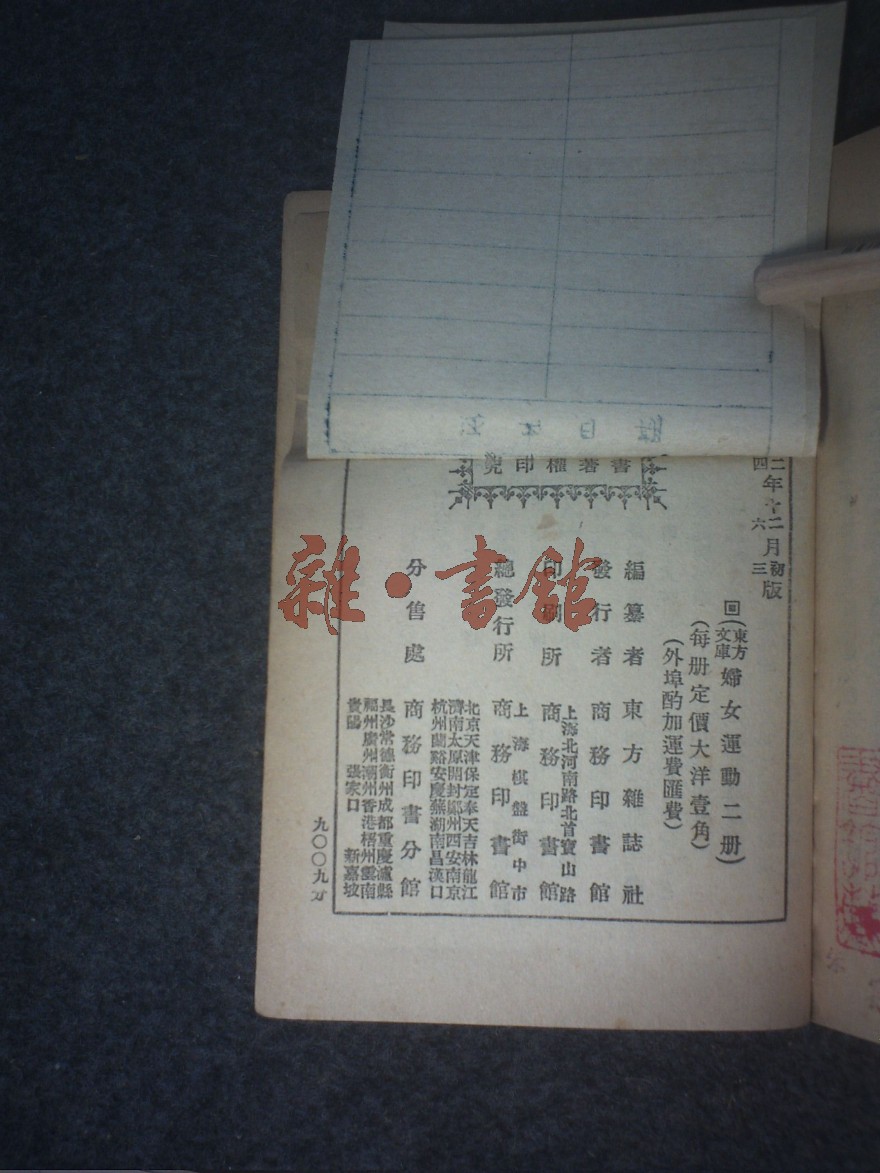 二年十二月初版
四 六 三
回(東方文庫)婦女運動二册)
(每册定價大洋壹角)
(外埠酌加運費匯費)
編纂者 東方雜誌社
發行者 商務印書館
印刷所 上海北河南路北首寶山路 商務印書館
總發行所 上海棋盤街中市 商務印書館
分售處 商務印書分館
北京天津保定奉天吉林龍江
濟南太原開封鄭州西安南京
杭州蘭谿安慶蕪湖南昌漢口
長沙常德衡州成都重慶瀘縣
福州廣州潮州香港梧州雲南
貴陽 張家口 新嘉坡
書著權印究
九〇〇九分
雜·書館